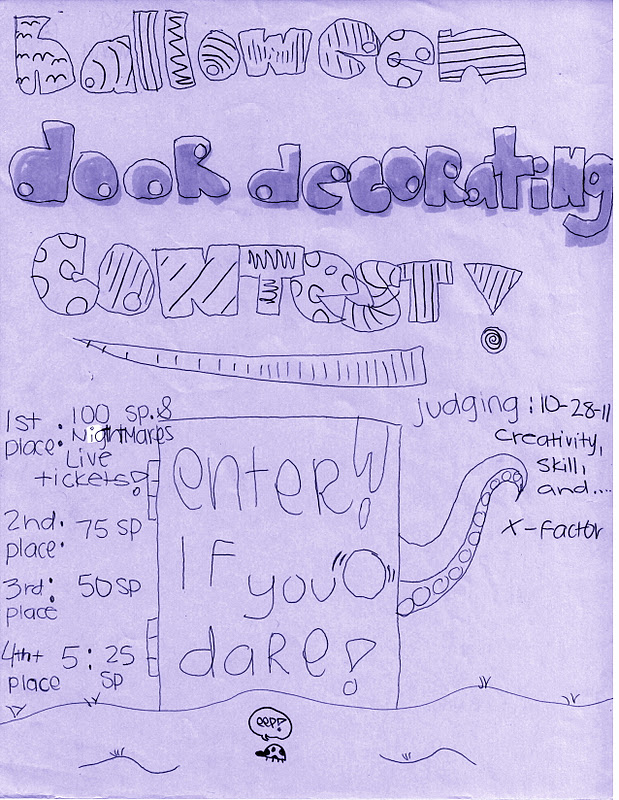 halloween
door decorating
contest!
1st place: 100 SP. &
NightMares
Live
tickets!
2nd place: 75 SP
3rd place: 50 SP
4th + 5: 25
place SP
enter!!
If you
dare!
judging: 10-28-11
creativity,
skill,
and....
X-factor
eep!